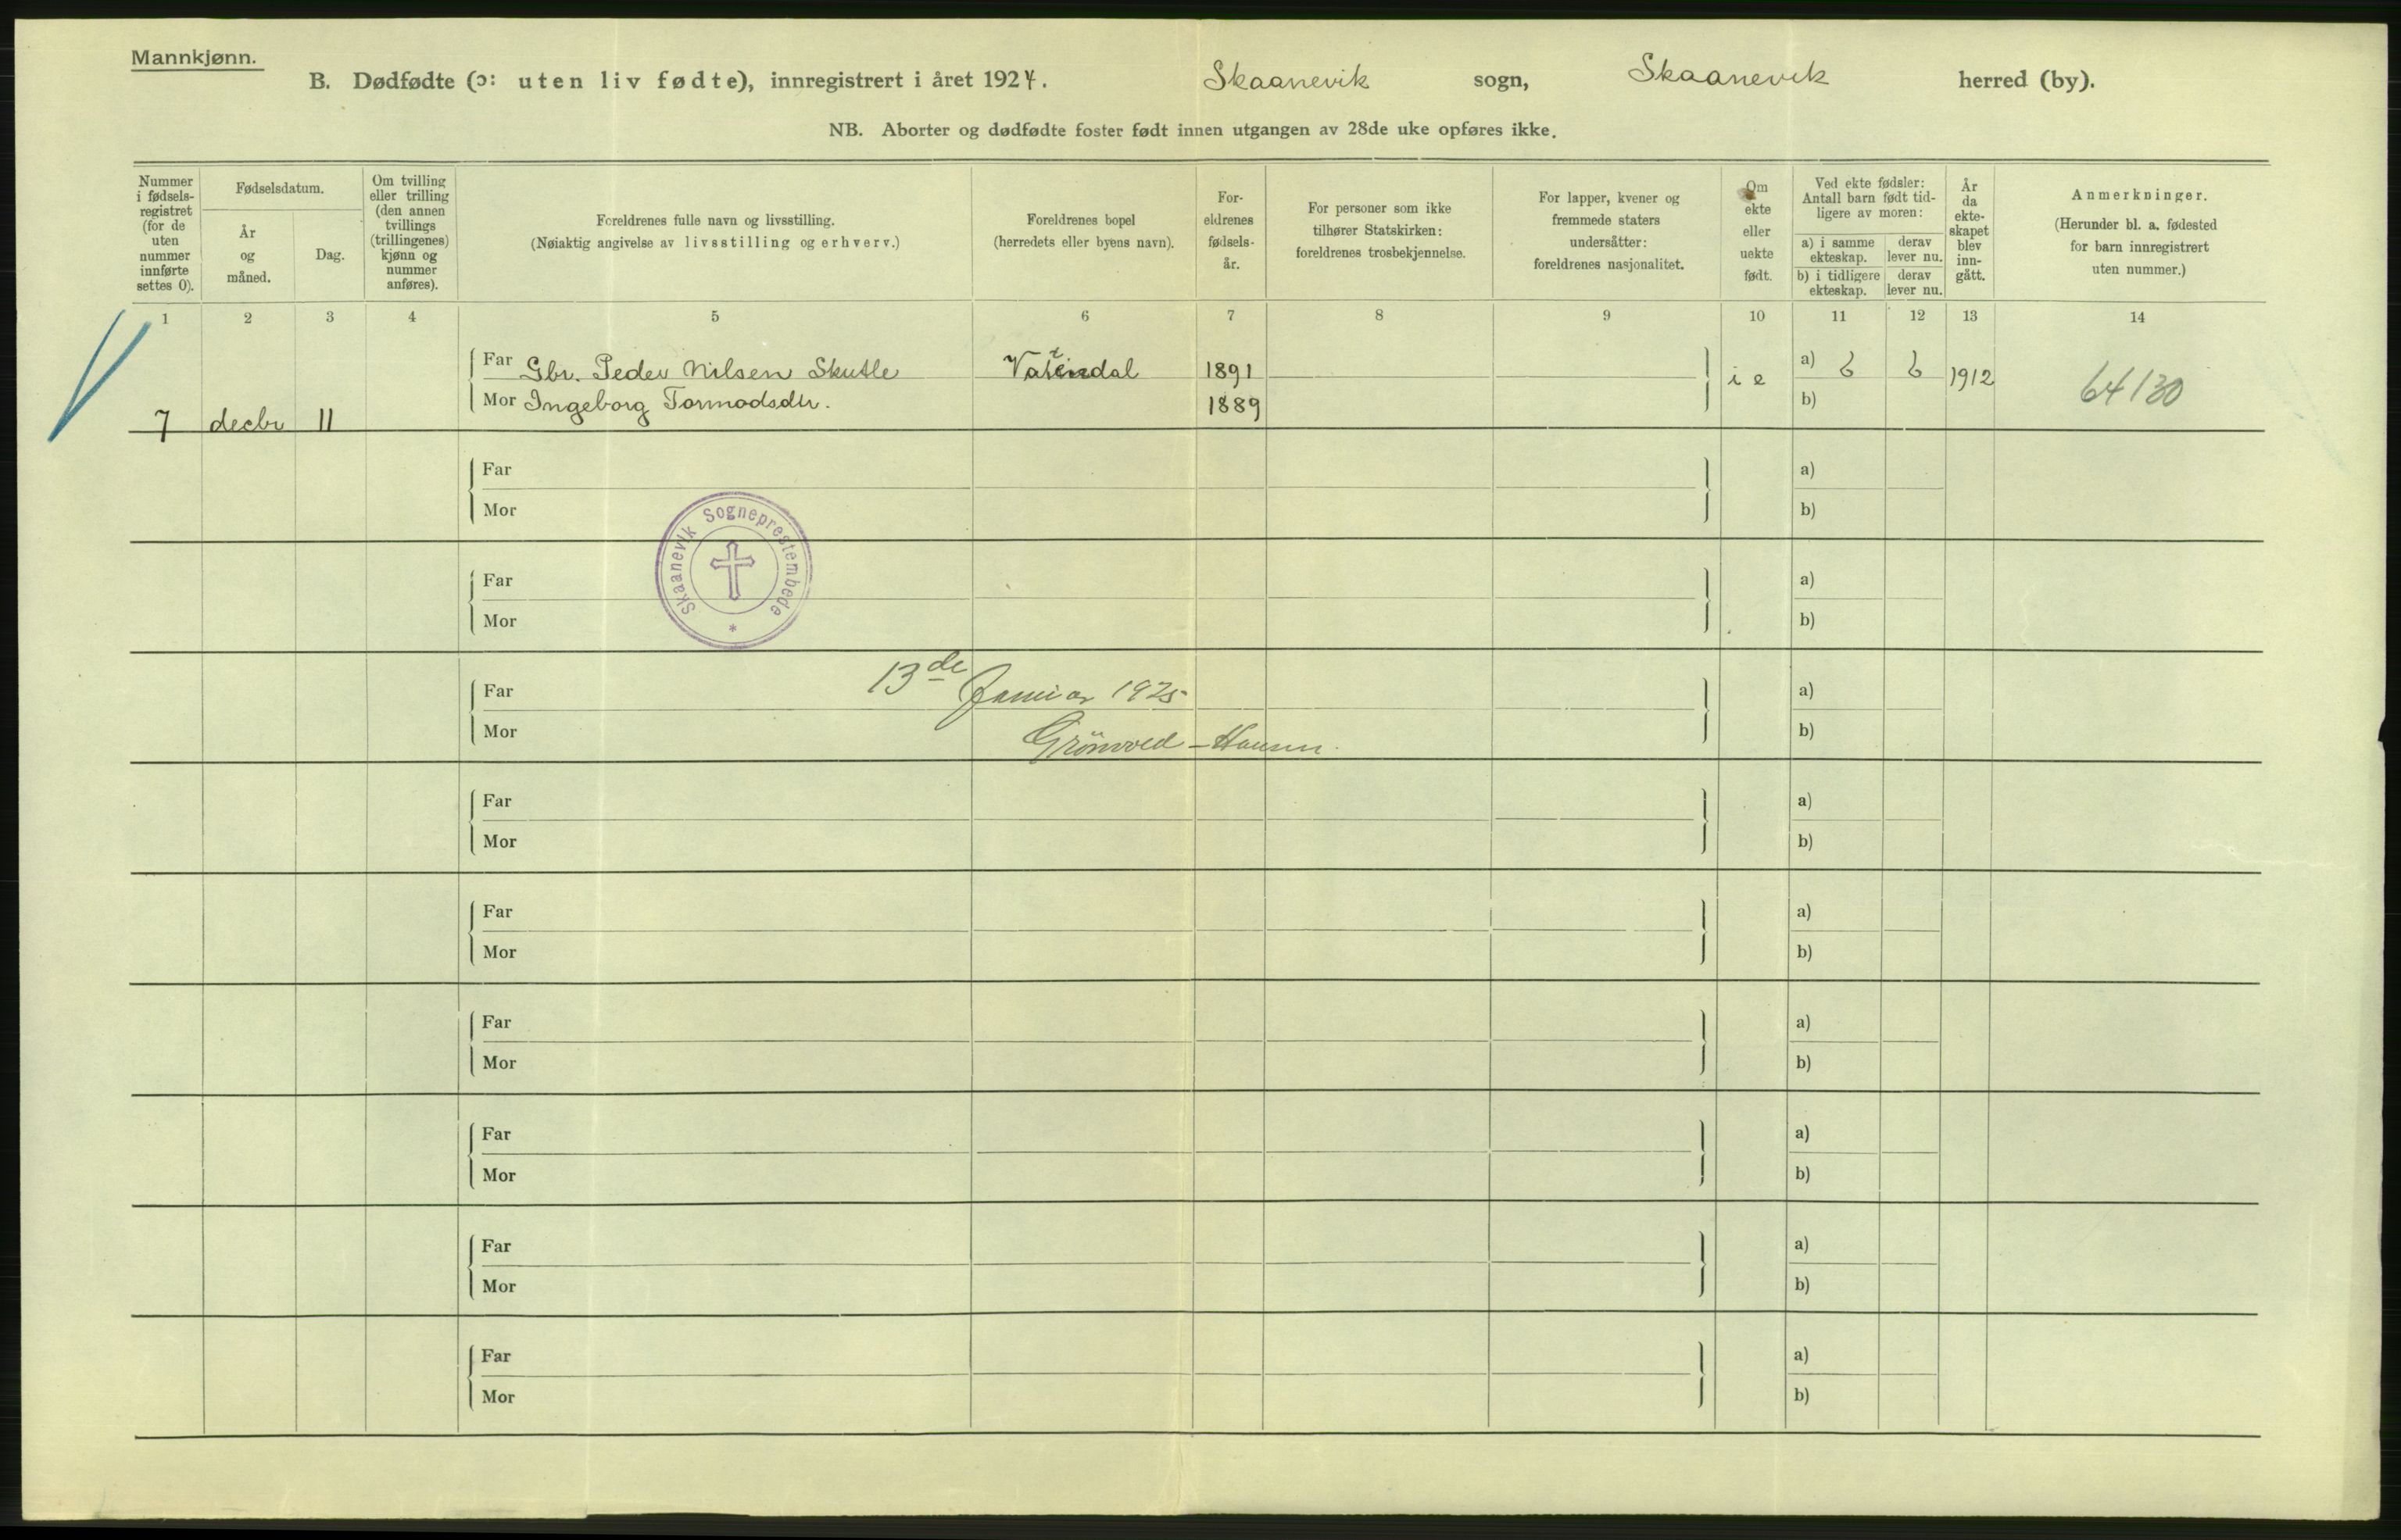 Mannkjønn.
B. Dødfødte (ɔ: uten liv fødte), innregistrert i året 1924. Skaanevik sogn, Skaanevik herred (by).
NB. Aborter og dødfødte foster født innen utgangen av 28de uke opføres ikke.
Nummer i fødsels-registret (for de uten nummer innførte settes 0).
Fødselsdatum.
År og måned.
Dag.
Om tvilling eller trilling (den annen tvillings (trillingenes) kjønn og nummer anføres).
Foreldrenes fulle navn og livsstilling.
(Nøiaktig angivelse av livsstilling og erhverv.)
Foreldrenes bopel
(herredets eller byens navn).
For-eldrenes fødsels-år.
For personer som ikke tilhører Statskirken: foreldrenes trosbekjennelse.
For lapper, kvener og fremmede staters undersåtter: foreldrenes nasjonalitet.
Om ekte eller uekte født.
Ved ekte fødsler: Antall barn født tid-ligere av moren:
a) i samme ekteskap.
derav lever nu.
b) i tidligere ekteskap.
derav lever nu.
År da ekte-skapet blev inn-gått.
Anmerkninger.
(Herunder bl. a. fødested for barn innregistrert uten nummer.)
1 2 3 4 5 6 7 8 9 10 11 12 13 14
Far Gbr. Peder Nilsen Skutle 1891 i e a) 6 6 1912 64130
Mor Ingeborg Tormodsdtr. 1889 b)
7 decbr 11
Far a)
Mor b)
Skaanevik Sogneprestembede *
Far a)
Mor b)
Far 13de Januar 1925 a)
Mor Grönvold-Hansen. b)
Far a)
Mor b)
Far a)
Mor b)
Far a)
Mor b)
Far a)
Mor b)
Far a)
Mor b)
Far a)
Mor b)